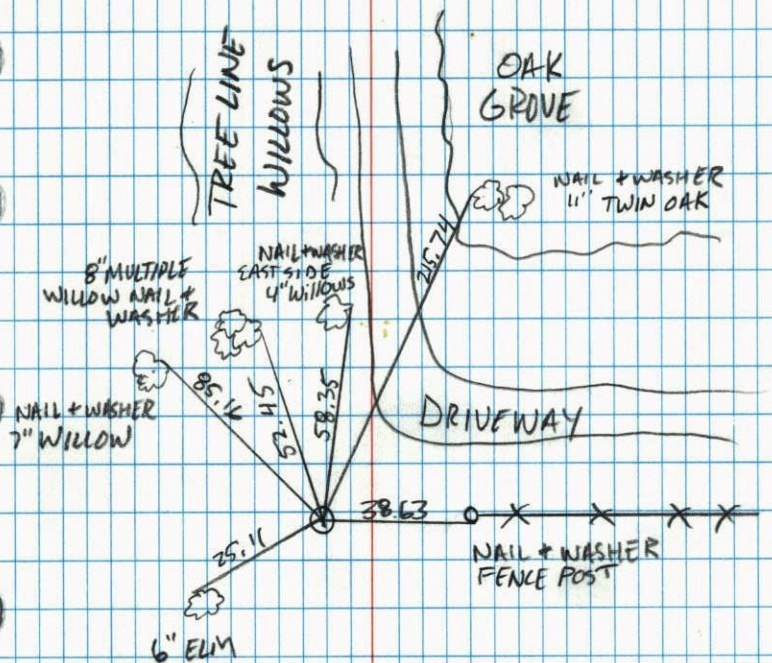 TREE LINE
WILLOWS
OAK
GROVE
NAIL + WASHER
11" TWIN OAK
215.74
NAIL + WASHER
EAST SIDE
4" WILLOWS
8" MULTIPLE
WILLOW NAIL +
WASHER
NAIL + WASHER
7" WILLOW
71.58
52.45
58.35
DRIVEWAY
38.63
NAIL + WASHER
FENCE POST
6" ELM